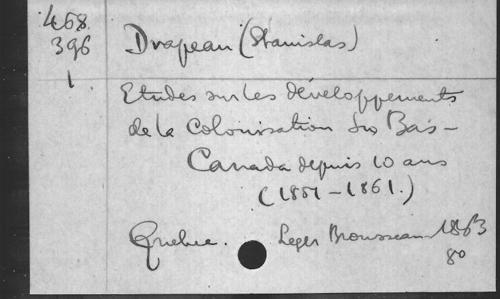 468.
396
1.
Drapeau (Stanislas)
Etudes sur les développements
de la Colonisation du Bas-
Canada depuis 10 ans
(1851-1861.)
Quebec. Leger Brousseau 1863
80